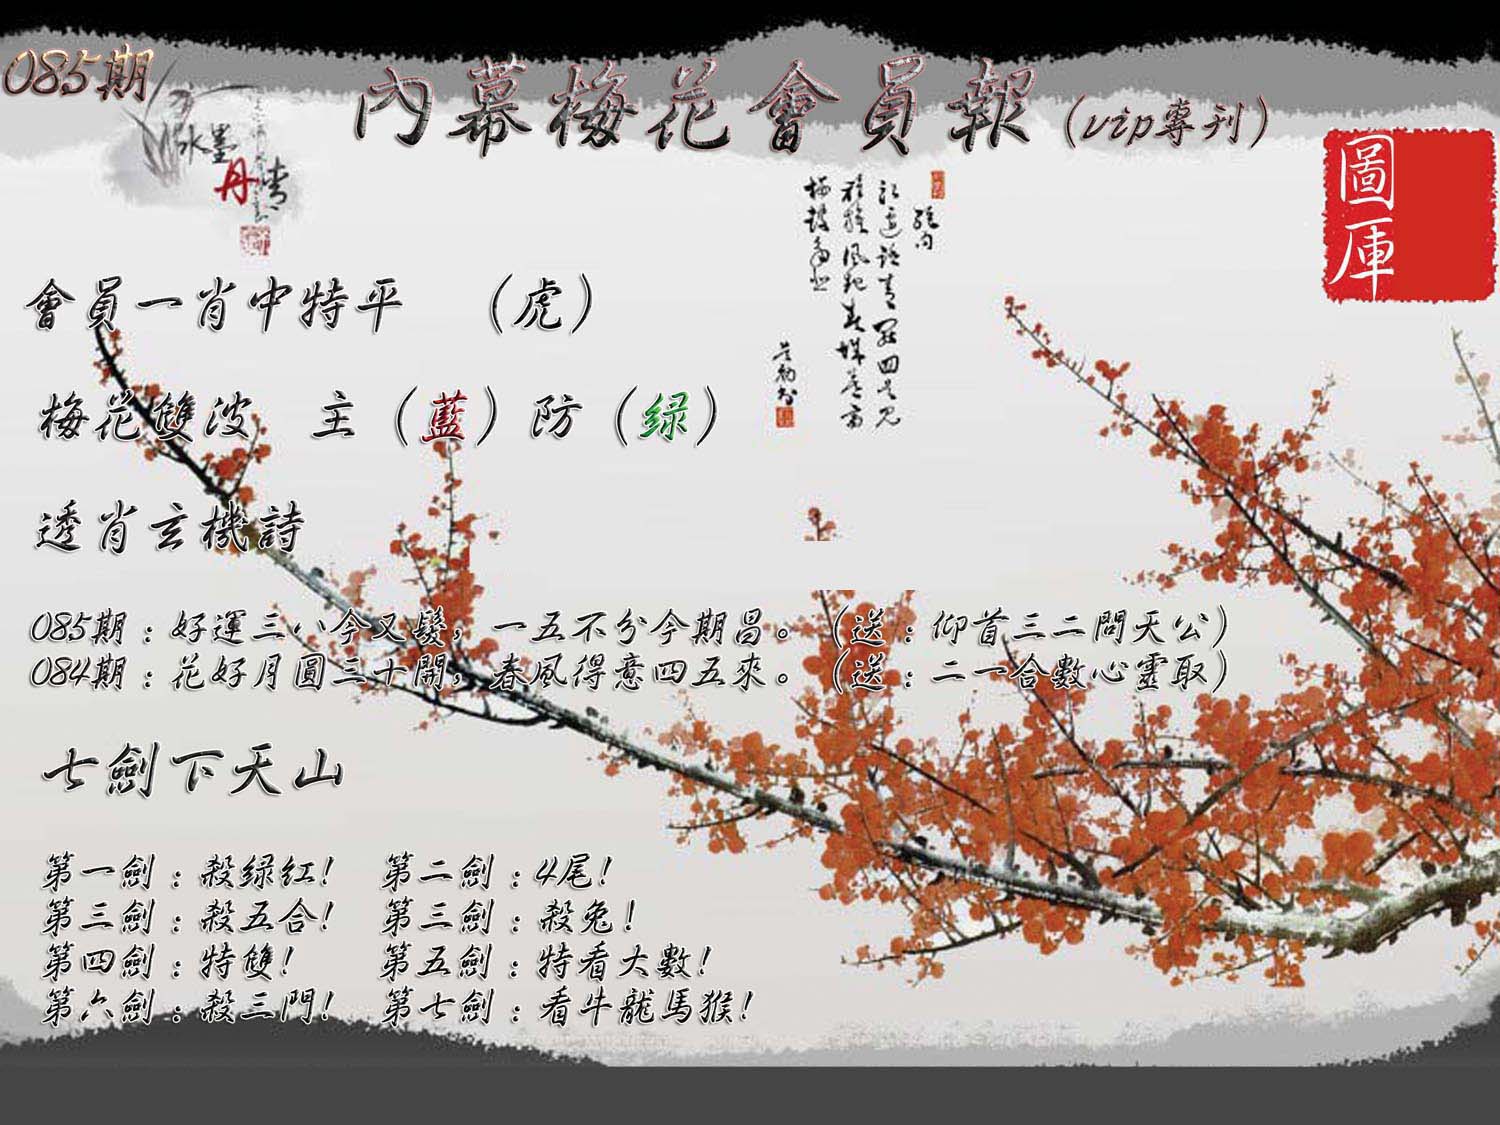 085期
內幕梅花會員報(vip專刊)
水墨
丹青
圖
庫
會員一肖中特平 (虎)
梅花雙波 主(藍)防(绿)
透肖玄機詩
085期:好運三八今又髮,一五不分今期昌。(送:仰首三二問天公)
084期:花好月圓三十開,春風得意四五來。(送:二一合數心靈取)
七劍下天山
第一劍:殺绿红! 第二劍:4尾!
第三劍:殺五合! 第三劍:殺兔!
第四劍:特雙! 第五劍:特看大數!
第六劍:殺三門! 第七劍:看牛龍馬猴!